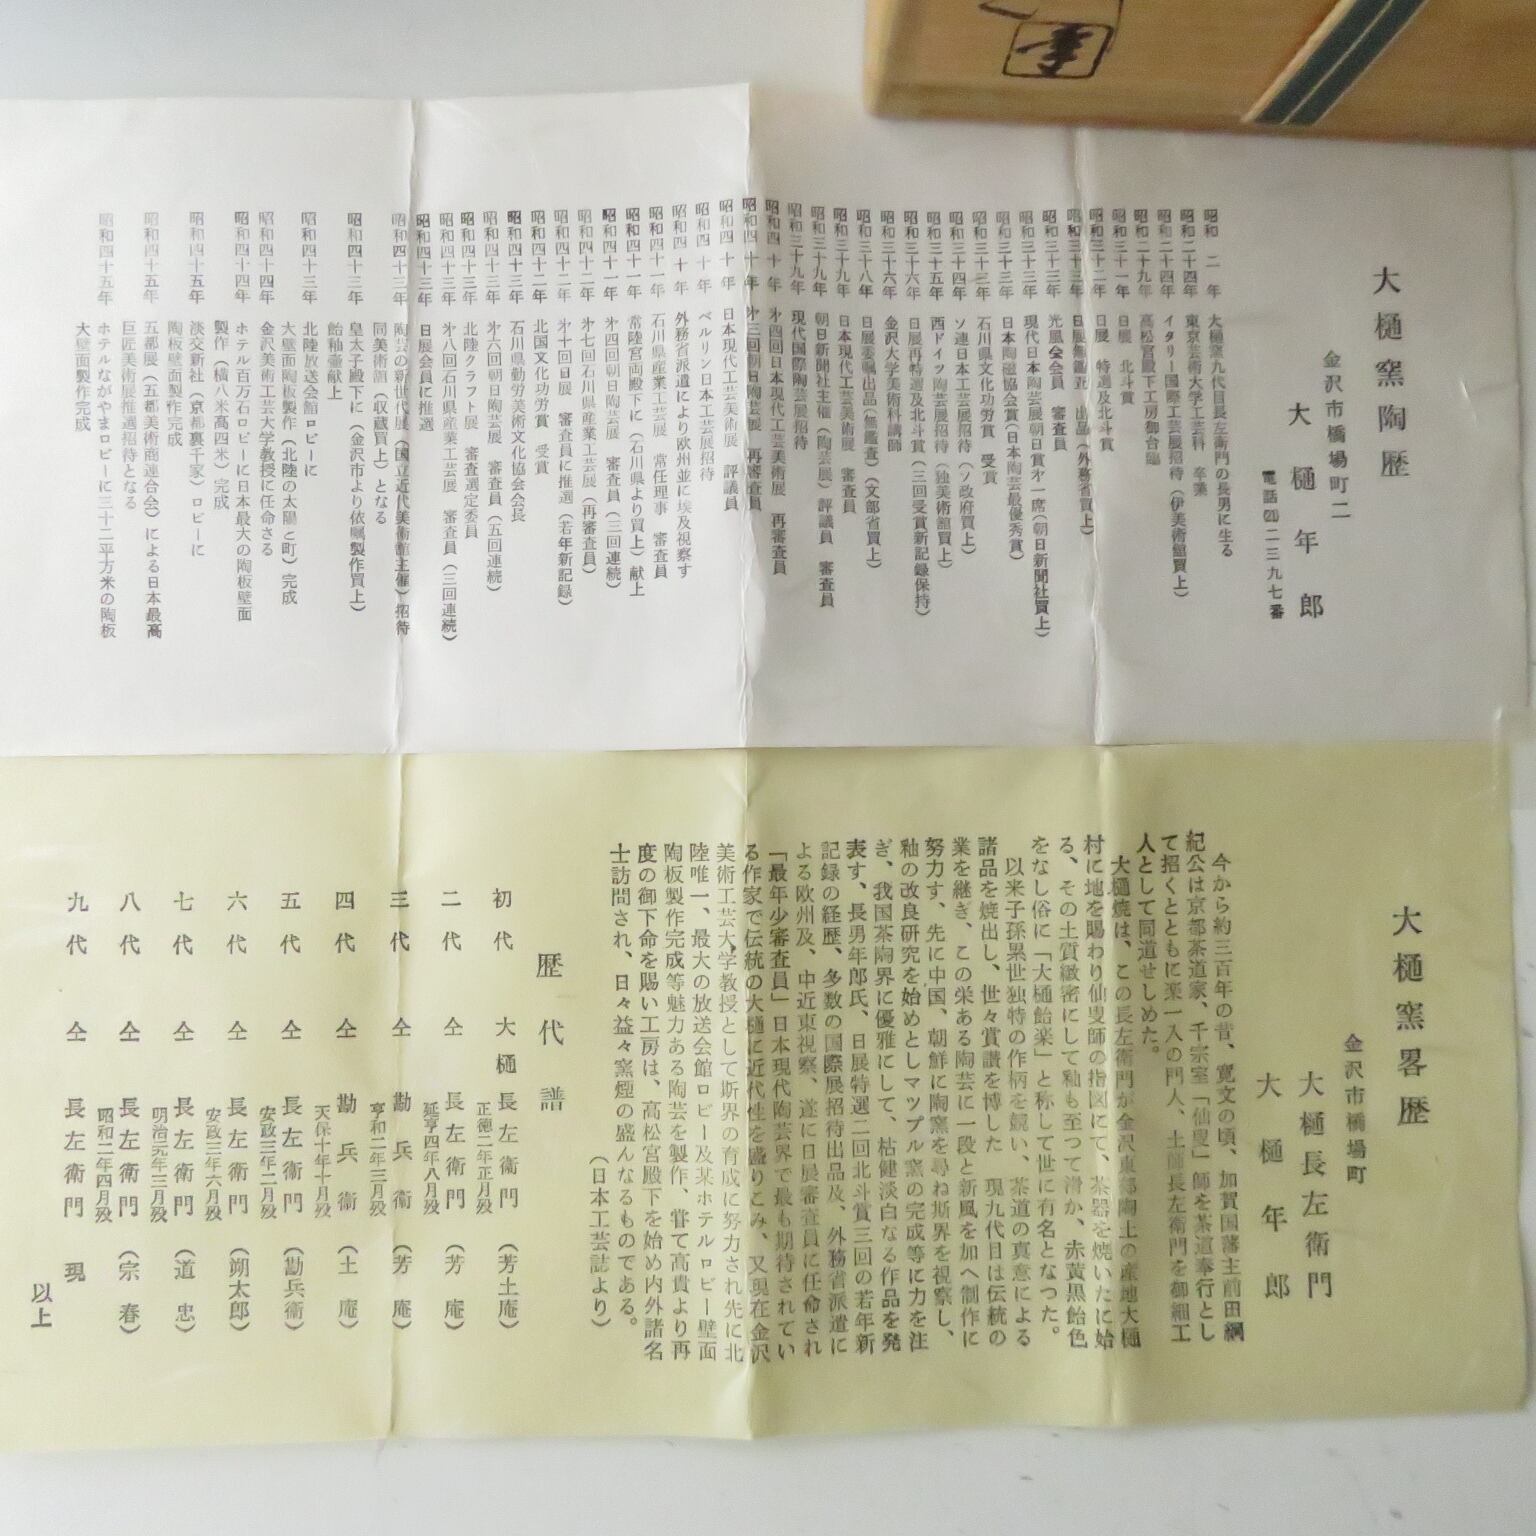 大樋窯陶歴
金沢市橋場町二
大樋年郎
電話 二三九七番
昭和二年 大樋窯九代目長左衛門の長男に生る
昭和二十四年 東京芸術大学工芸科 卒業
昭和二十四年 イタリー国際工芸展招待(伊美術館買上)
昭和二十九年 高松宮殿下工房御台臨
昭和三十一年 日展 北斗賞
昭和三十二年 日展 特選及北斗賞
昭和三十三年 日展無鑑査 出品(外務省買上)
昭和三十三年 光風会会員 審査員
昭和三十三年 現代日本陶芸展朝日賞才一席(朝日新聞社買上)
昭和三十三年 日本陶磁協会賞(日本陶芸最優秀賞)
昭和三十三年 石川県文化功労賞 受賞
昭和三十四年 ソ連日本工芸展招待(ソ政府買上)
昭和三十五年 西ドイツ陶芸展招待(独美術館買上)
昭和三十六年 日展再特選及北斗賞(三回受賞新記録保持)
昭和三十六年 金沢大学美術科講師
昭和三十八年 日展委嘱出品(無鑑査)(文部省買上)
昭和三十九年 日本現代工芸美術展 審査員
昭和三十九年 朝日新聞社主催(陶芸展)評議員 審査員
昭和三十九年 現代国際陶芸展招待
昭和四十年 才四回日本現代工芸美術展 再審査員
昭和四十年 才三回朝日陶芸展 再審査員
昭和四十年 日本現代工芸美術展 評議員
昭和四十年 ベルリン日本工芸展招待
昭和四十年 外務省派遣により欧州並に埃及視察す
昭和四十一年 石川県産業工芸展 常任理事 審査員
昭和四十一年 常陸宮両殿下に(石川県より買上)献上
昭和四十一年 才四回朝日陶芸展 審査員(三回連続)
昭和四十二年 才七回石川県産業工芸展(再審査員)
昭和四十二年 才十回日展 審査員に推選(若年新記録)
昭和四十二年 北国文化功労賞 受賞
昭和四十三年 石川県勤労美術文化協会会長
昭和四十三年 才六回朝日陶芸展 審査員(五回連続)
昭和四十三年 北陸クラフト展 審査選定委員
昭和四十三年 才八回石川県産業工芸展 審査員(三回連続)
昭和四十三年 日展会員に推選
昭和四十三年 陶芸の新世代展(国立近代美術館主催)招待
同美術館(収蔵買上)となる
昭和四十三年 皇太子殿下に(金沢市より依嘱製作買上)
飴釉壷献上
昭和四十三年 北陸放送会館ロビーに
大壁面陶板製作(北陸の太陽と町)完成
昭和四十四年 金沢美術工芸大学教授に任命さる
昭和四十四年 ホテル百万石ロビーに日本最大の陶板壁面
製作(横八米高四米)完成
昭和四十五年 淡交新社(京都裏千家)ロビーに
陶板壁面製作完成
昭和四十五年 五都展(五都美術商連合会)による日本最高
巨匠美術展推選招待となる
昭和四十五年 ホテルながやまロビーに三十二平方米の陶板
大壁面製作完成
大樋窯畧歴
金沢市橋場町
大樋長左衛門
大樋年郎
今から約三百年の昔、寛文の頃、加賀国藩主前田綱
紀公は京都茶道家、千宗室「仙叟」師を茶道奉行とし
て招くとともに楽一入の門人、土師長左衛門を御細工
人として同道せしめた。
大樋焼は、この長左衛門が金沢東郊陶土の産地大樋
村に地を賜わり仙叟師の指図にて、茶器を焼いたに始
る、その土質緻密にして釉も至つて滑か、赤黄黒飴色
をなし俗に「大樋飴楽」と称して世に有名となつた。
以来子孫累世独特の作柄を競い、茶道の真意による
諸品を焼出し、世々賞讃を博した 現九代目は伝統の
業を継ぎ、この栄ある陶芸に一段と新風を加へ制作に
努力す、先に中国、朝鮮に陶窯を尋ね斯界を視察し、
釉の改良研究を始めとしマツプル窯の完成等に力を注
ぎ、我国茶陶界に優雅にして、枯健淡白なる作品を発
表す、長男年郎氏、日展特選二回北斗賞三回の若年新
記録の経歴、多数の国際展招待出品及、外務省派遣に
よる欧州及、中近東視察、遂に日展審査員に任命され
「最年少審査員」日本現代陶芸界で最も期待されてい
る作家で伝統の大樋に近代性を盛りこみ、又現在金沢
美術工芸大学教授として斯界の育成に努力され先に北
陸唯一、最大の放送会館ロビー及某ホテルロビー壁面
陶板製作完成等魅力ある陶芸を製作、甞て高貴より再
度の御下命を賜い工房は、高松宮殿下を始め内外諸名
士訪問され、日々益々窯煙の盛んなるものである。
(日本工芸誌より)
歴代譜
初代 大樋長左衛門(芳土庵)
正徳二年正月歿
二代 仝 長左衛門(芳庵)
延亨四年八月歿
三代 仝 勘兵衛(芳庵)
亨和二年三月歿
四代 仝 勘兵衛(土庵)
天保十年十月歿
五代 仝 長左衛門(勘兵衛)
安政三年二月歿
六代 仝 長左衛門(朔太郎)
安政三年六月歿
七代 仝 長左衛門(道忠)
明治元年三月歿
八代 仝 長左衛門(宗春)
昭和二年四月歿
九代 仝 長左衛門 現
以上